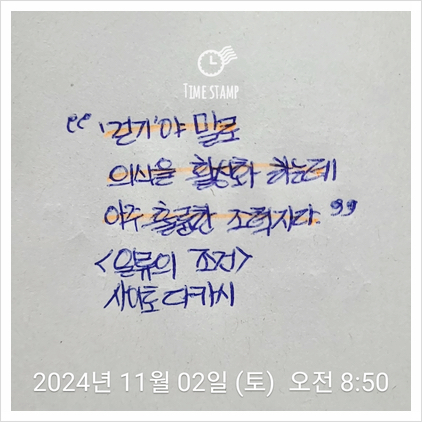 TIME STAMP
“ '걷기'야 말로
의식을 활성화 하는데
아주 훌륭한 조력자다. ”
<일류의 조건>
사이토 다카시
2024년 11월 02일 (토) 오전 8:50